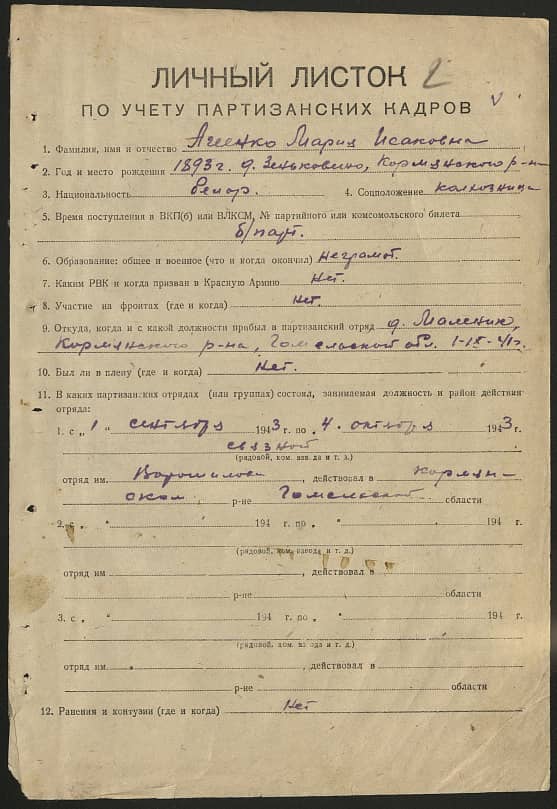 ЛИЧНЫЙ ЛИСТОК 2
ПО УЧЕТУ ПАРТИЗАНСКИХ КАДРОВ V
1. Фамилия, имя и отчество Мария Исаковна
2. Год и место рождения 1893 г. д. Зеньковино, Кормянского р-на
3. Национальность белор. 4. Соцположение колхозница
5. Время поступления в ВКП(б) или ВЛКСМ, № партийного или комсомольского билета
б/парт.
6. Образование: общее и военное (что и когда окончил) Неграмот.
7. Каким РВК и когда призван в Красную Армию Нет.
8. Участие на фронтах (где и когда) Нет.
9. Откуда, когда и с какой должности прибыл в партизанский отряд д.
Кормянского р-на, Гомельской обл. 1-IX-41г.
10. Был ли в плену (где и когда) Нет.
11. В каких партизанских отрядах (или группах) состоял, занимаемая должность и район действия
отряда:
1. с „1“ сентября 1943 г. по „4. октября 1943 г.
связной
(рядовой, ком. взвода и т. д.)
отряд им Ворошилова действовал в Кормян-
ском р-не Гомельской области
2. с „ “ 194 г. по „ “ 194 г.
(рядовой, ком. взвода и т. д.)
отряд им , действовал в
р-не области
3. с „ “ 194 г. по „ “ 194 г.
(рядовой, ком. взвода и т. д.)
отряд им. , действовал в
р-не области
12. Ранения и контузии (где и когда) Нет